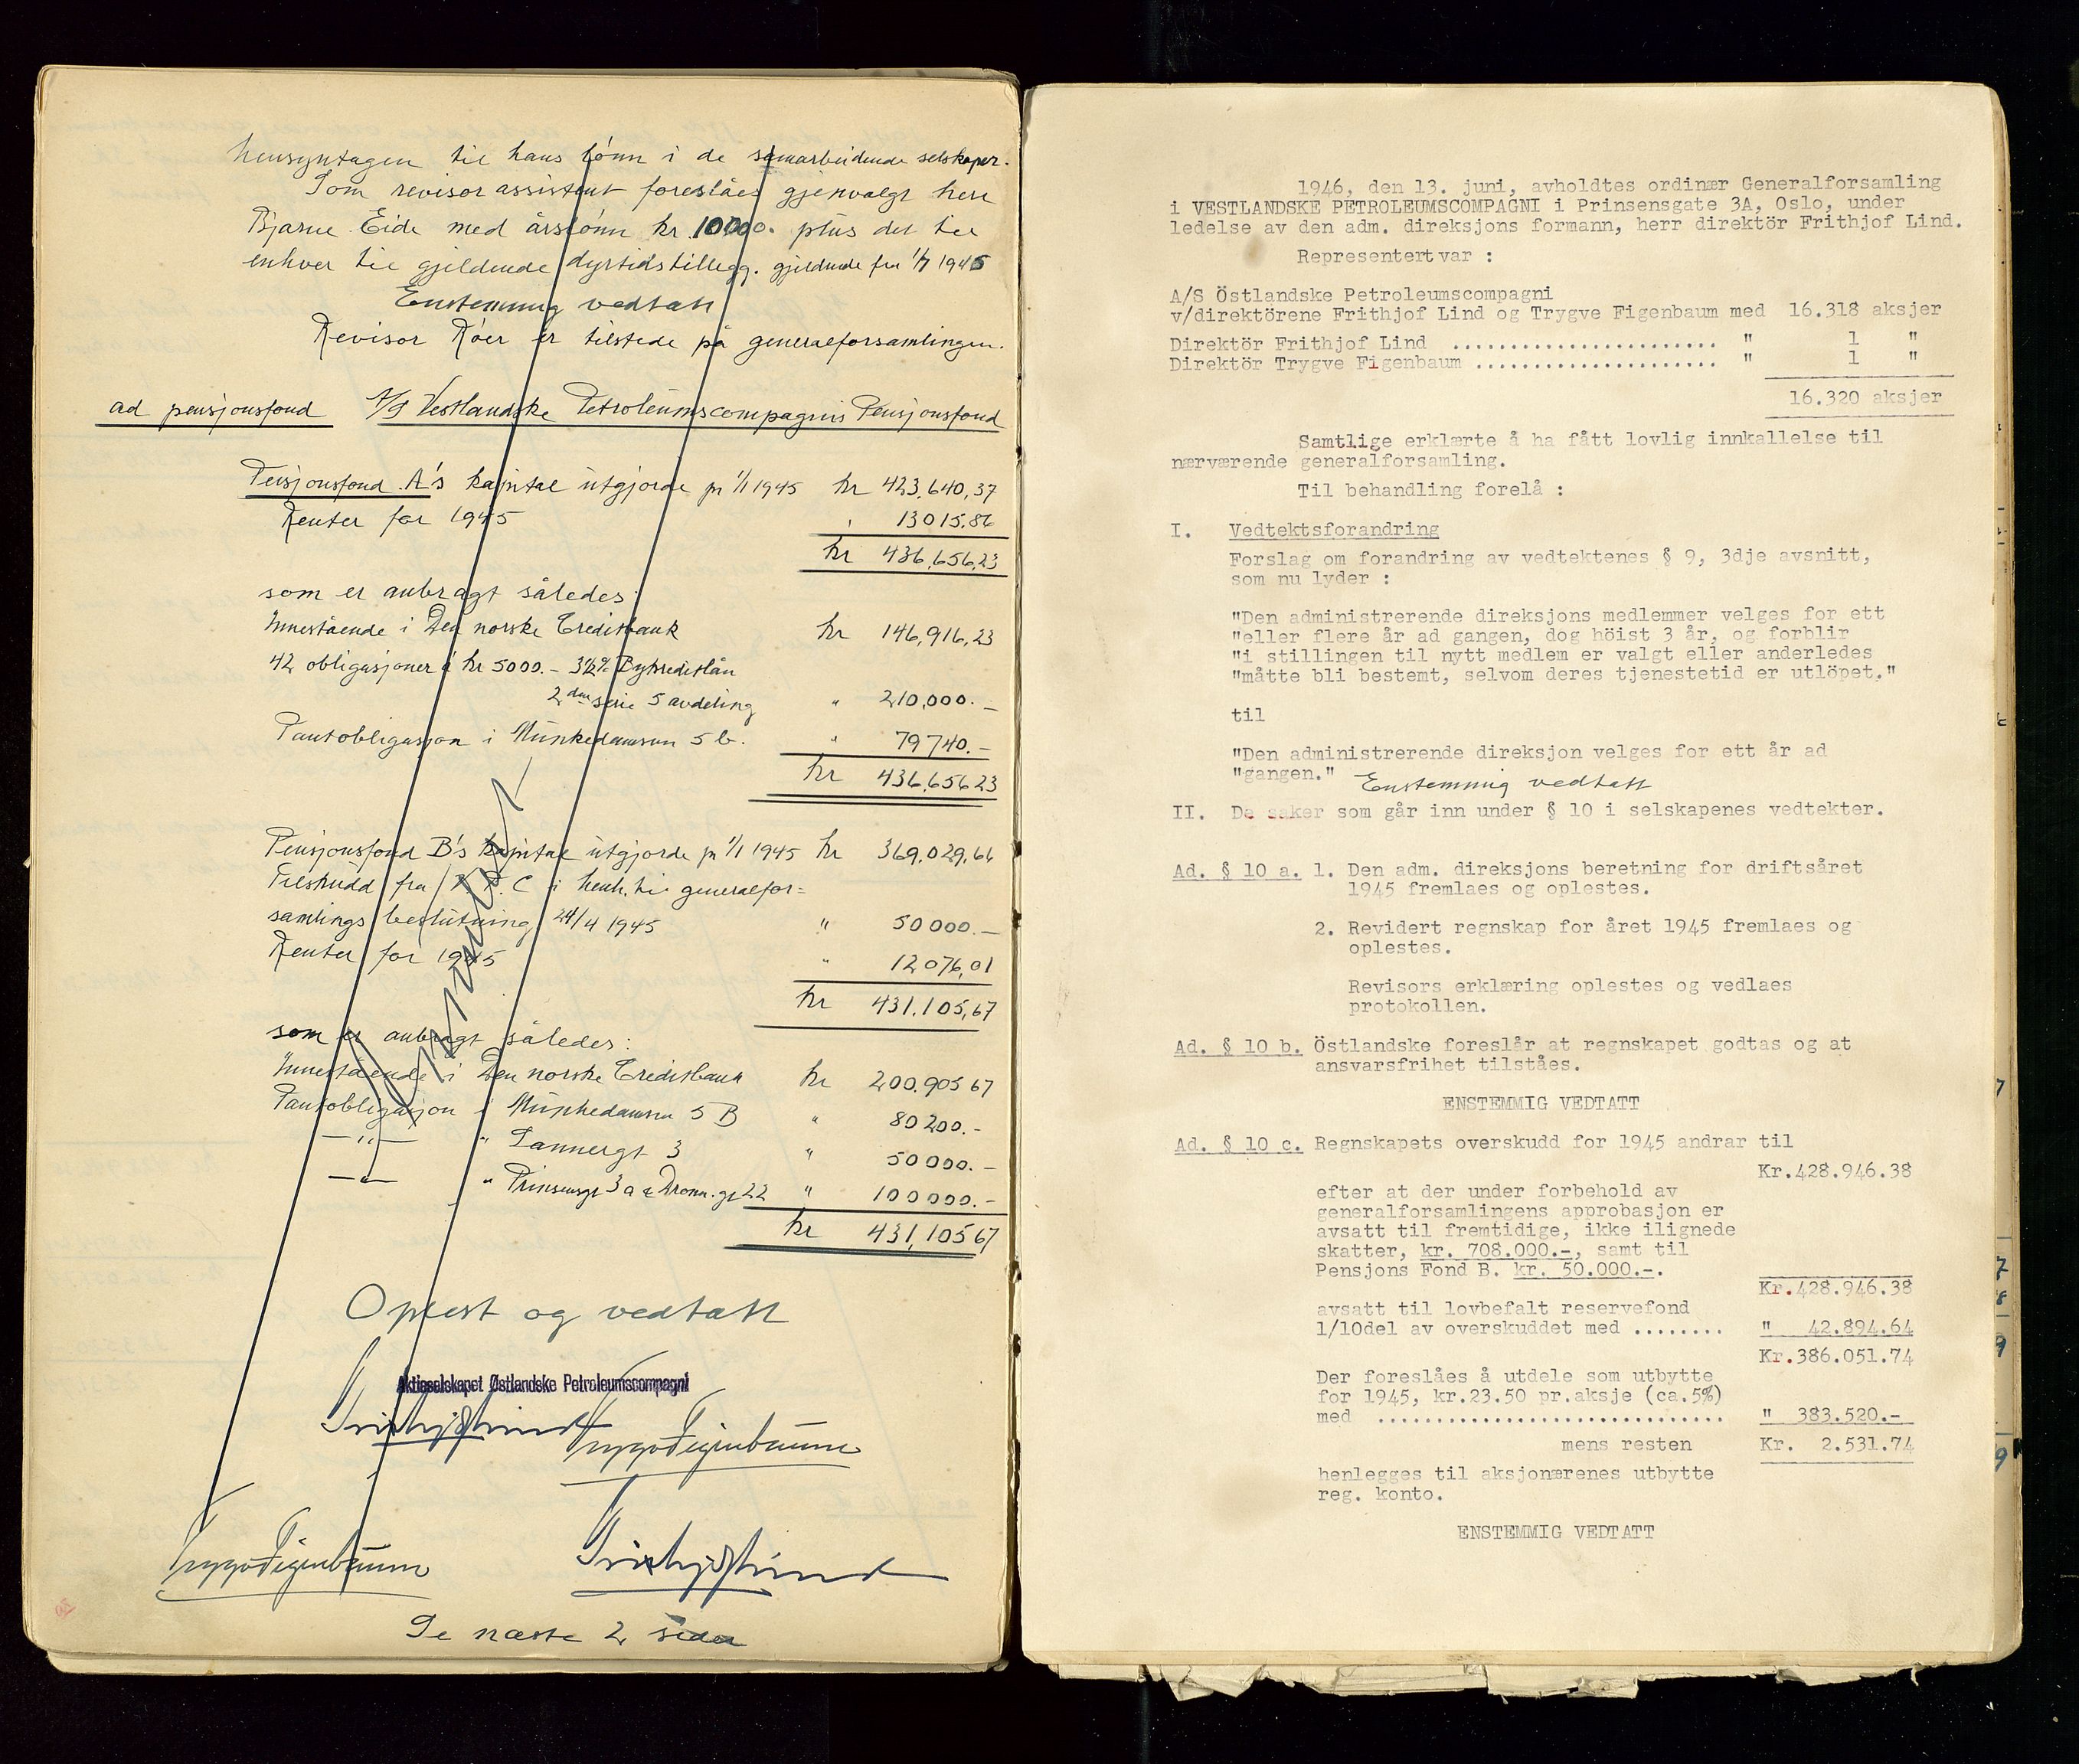 hensyntagen til hans lønn i de samarbeidende selskaper.
Som revisorassistent foreslåes gjenvalgt herr
Bjarne Eide med årslønn kr. 10000. plus det til
enhver tid gjeldende dyrtidstillegg. gjeldende fra 1/7 1945
Enstemmig vedtatt
Revisor Róer er tilstede på generalforsamlingen.
ad pensjonsfond A/S Vestlandske Petroleumscompagnis Pensjonsfond
Pensjonsfond A's kapital utgjorde pr 1/1 1945 kr 423,640,37
Renter for 1945 " 13015.86
kr 436,656,23
som er anbragt således:
Innestående i Den norske Creditbank kr 146,916,23
42 obligasjoner á kr 5000.- 3½% Bykreditlån
2den serie 5 avdeling " 210,000.-
Pantobligasjon i Munkedamsvn 5 b. " 79740.-
kr 436,656 23
Pensjonsfond B's kapital utgjorde pr 1/1 1945 kr 369,029,66
Tilskudd fra V.P.C i henh. til generalfor=
samlings beslutning 24/4 1945 " 50000.-
Renter for 1945 " 12076,01
kr 431,105,67
som er anbragt således:
Innestående i Den norske Creditbank kr 200.905 67
Pantobligasjon i Munkedamsvn 5 B " 80200.-
—"— " Sannergt 3 " 50000.-
—"— " Prinsensgt 3a & Dronn.gt 22 " 100000.-
kr 431,105 67
Oplest og vedtatt
Aktieselskapet Østlandske Petroleumscompagni
Frithjof Lind
Trygve Figenbaum
Trygve Figenbaum Frithjof Lind
Se næste 2 sider
1946, den 13. juni, avholdtes ordinær Generalforsamling
i VESTLANDSKE PETROLEUMSCOMPAGNI i Prinsensgate 3A, Oslo, under
ledelse av den adm. direksjons formann, herr direktör Frithjof Lind.
Representert var :
A/S Östlandske Petroleumscompagni
v/direktörene Frithjof Lind og Trygve Figenbaum med 16.318 aksjer
Direktör Frithjof Lind ....................... " 1 "
Direktör Trygve Figenbaum ..................... " 1 "
16.320 aksjer
Samtlige erklærte å ha fått lovlig innkallelse til
nærværende generalforsamling.
Til behandling forelå :
I. Vedtektsforandring
Forslag om forandring av vedtektenes § 9, 3dje avsnitt,
som nu lyder :
"Den administrerende direksjons medlemmer velges for ett
"eller flere år ad gangen, dog höist 3 år, og forblir
"i stillingen til nytt medlem er valgt eller anderledes
"måtte bli bestemt, selvom deres tjenestetid er utlöpet."
til
"Den administrerende direksjon velges for ett år ad
"gangen." Enstemmig vedtatt
II. De saker som går inn under § 10 i selskapenes vedtekter.
Ad. § 10 a. 1. Den adm. direksjons beretning for driftsåret
1945 fremlaes og oplestes.
2. Revidert regnskap for året 1945 fremlaes og
oplestes.
Revisors erklæring oplestes og vedlaes
protokollen.
Ad. § 10 b. Östlandske foreslår at regnskapet godtas og at
ansvarsfrihet tilståes.
ENSTEMMIG VEDTATT
Ad. § 10 c. Regnskapets overskudd for 1945 andrar til
Kr.428.946.38
efter at der under forbehold av
generalforsamlingens approbasjon er
avsatt til fremtidige, ikke ilignede
skatter, kr. 708.000.-, samt til
Pensjons Fond B. kr. 50.000.-.
Kr.428.946.38
avsatt til lovbefalt reservefond
1/10del av overskuddet med ........ " 42.894.64
Kr.386.051.74
Der foreslåes å utdele som utbytte
for 1945, kr.23.50 pr.aksje (ca.5%)
med .............................. " 383.520.-
mens resten Kr. 2.531.74
henlegges til aksjonærenes utbytte
reg. konto.
ENSTEMMIG VEDTATT